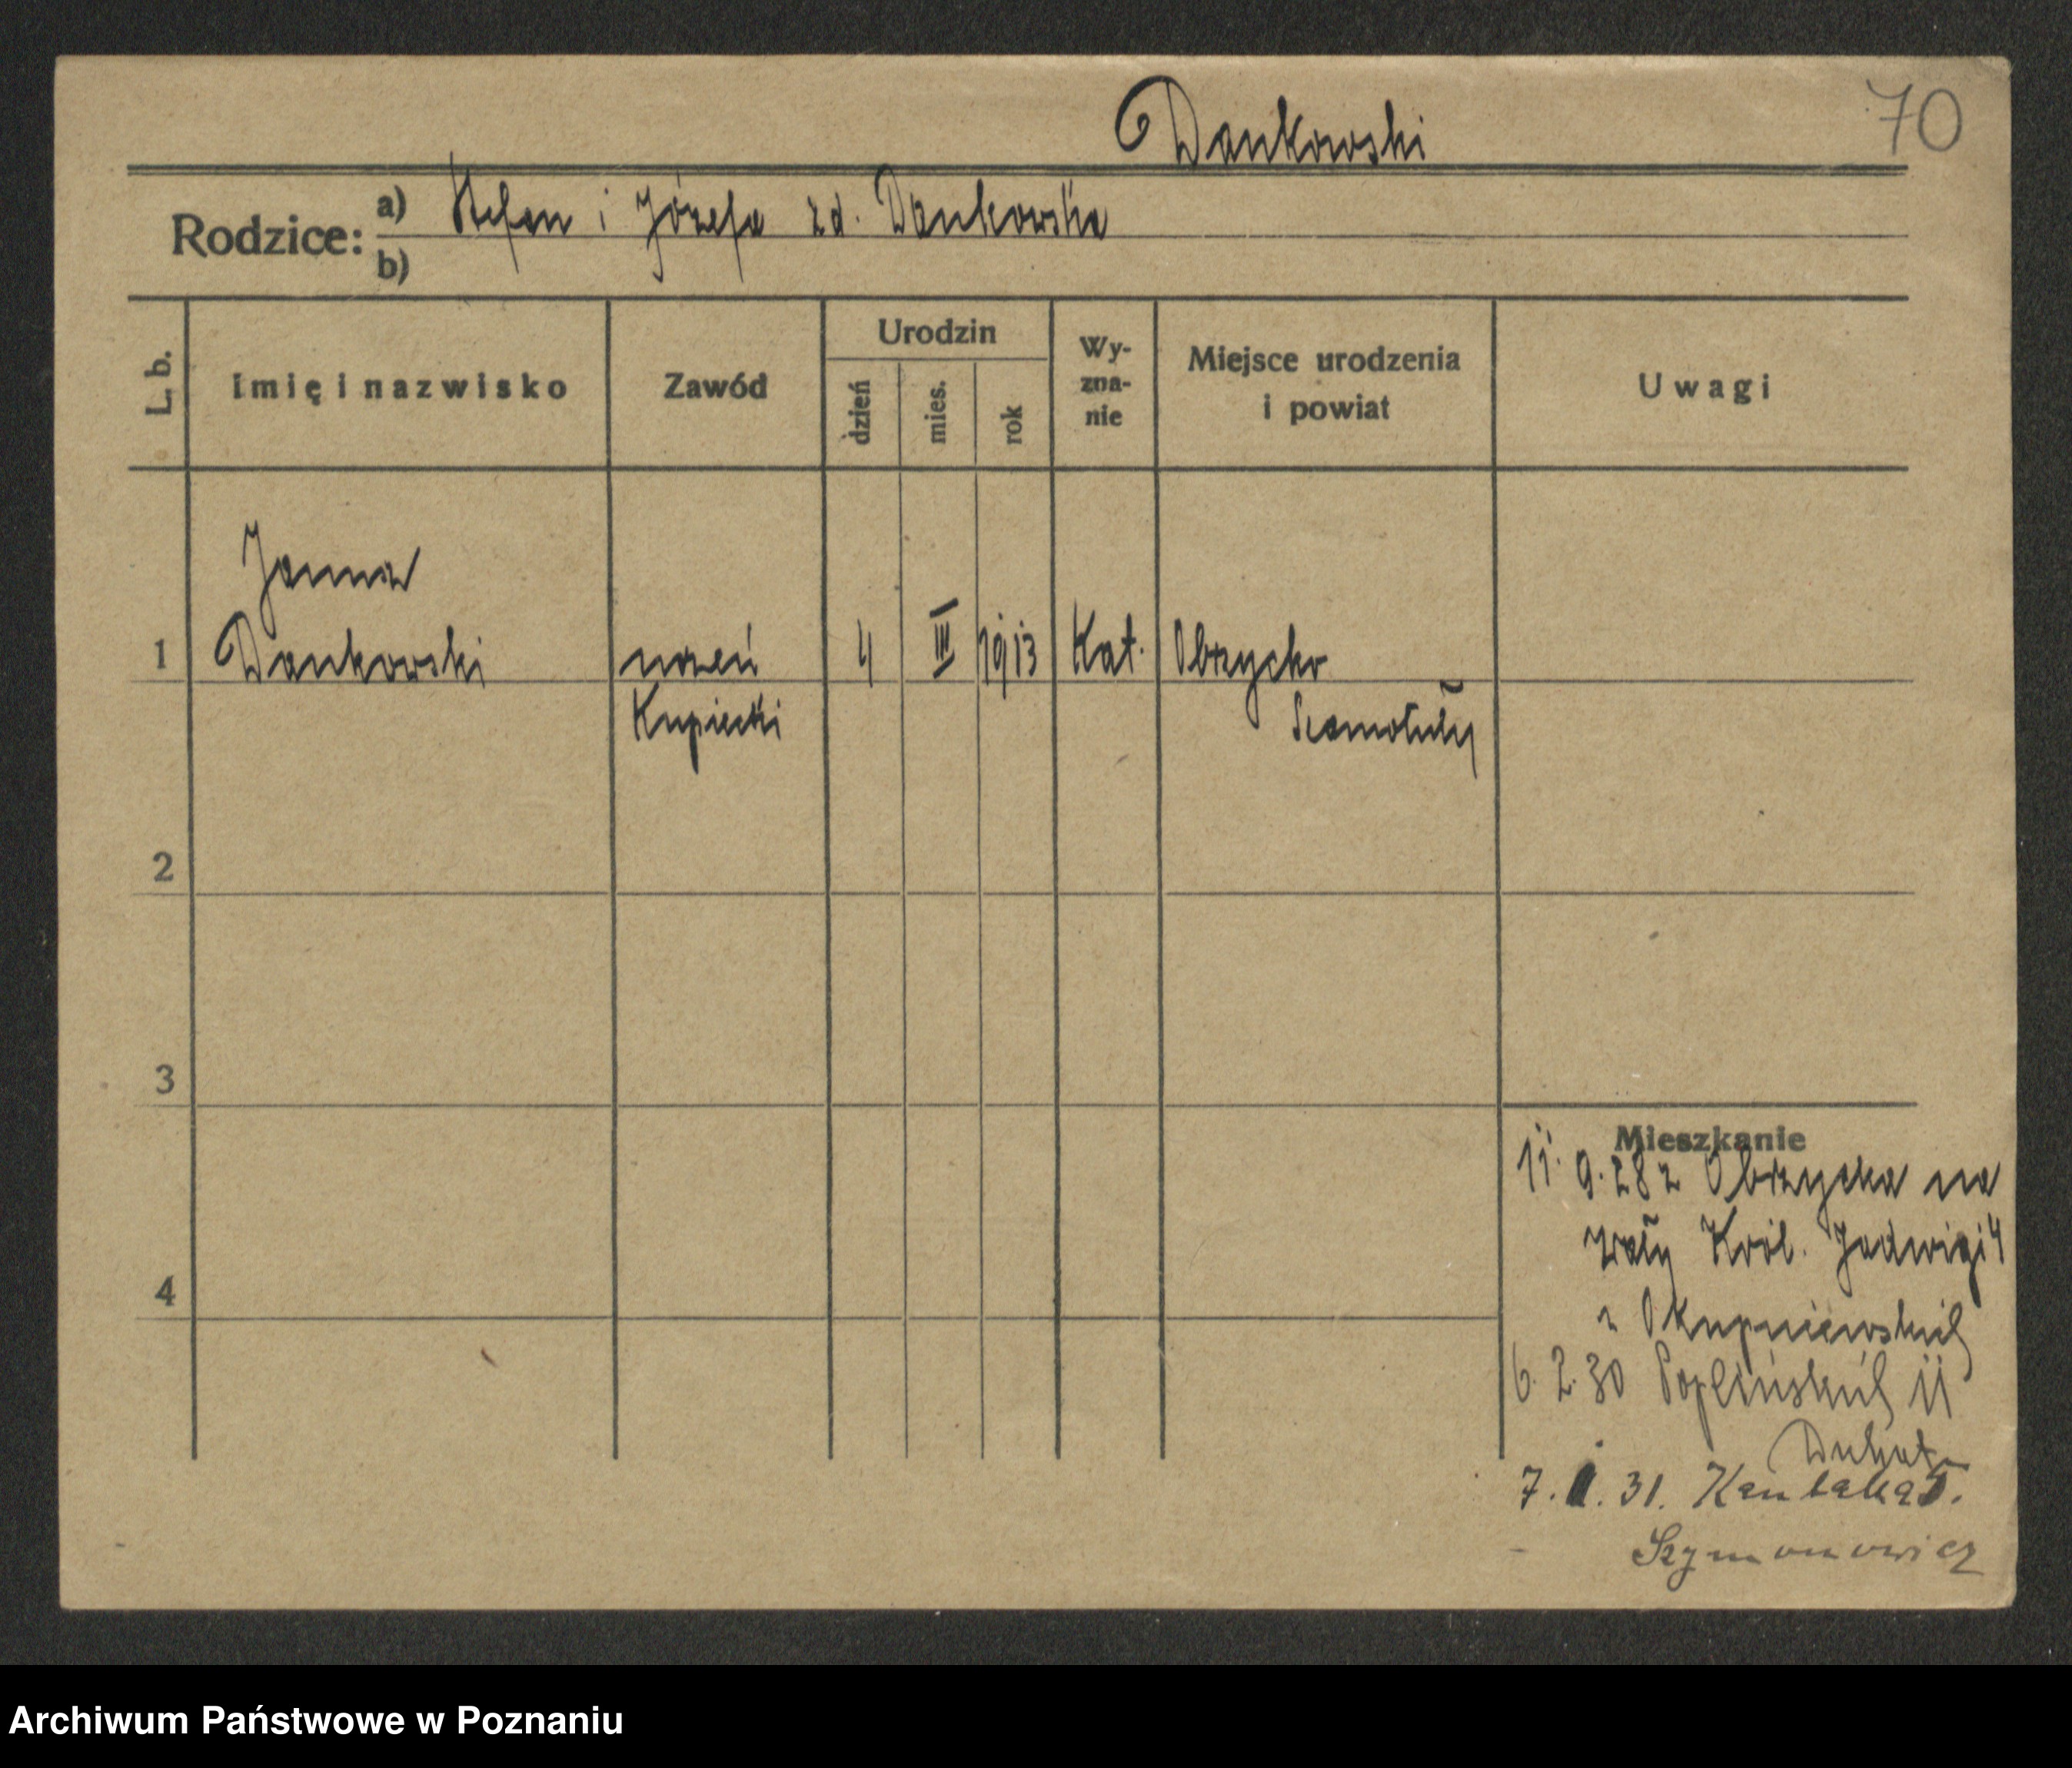 70
Dankowski
Rodzice:
a) Stefan i Józefa zd. Dankowska
b)
L. b.
Imię i nazwisko
Zawód
Urodzin
dzień
mies.
rok
Wy-
zna-
nie
Miejsce urodzenia
i powiat
Uwagi
1
Dankowski
uczeń
Kupiecki
4
III
1913
Kat.
Obrzycko
Szamotuły
2
3
4
Mieszkanie
11. 9. 28 z Obrzycka na
Wały Król. Jadwigi 4
6. 2. 30 Poplińskich 11
7. 31. Kantaka 5.
Szymonowicz
Archiwum Państwowe w Poznaniu